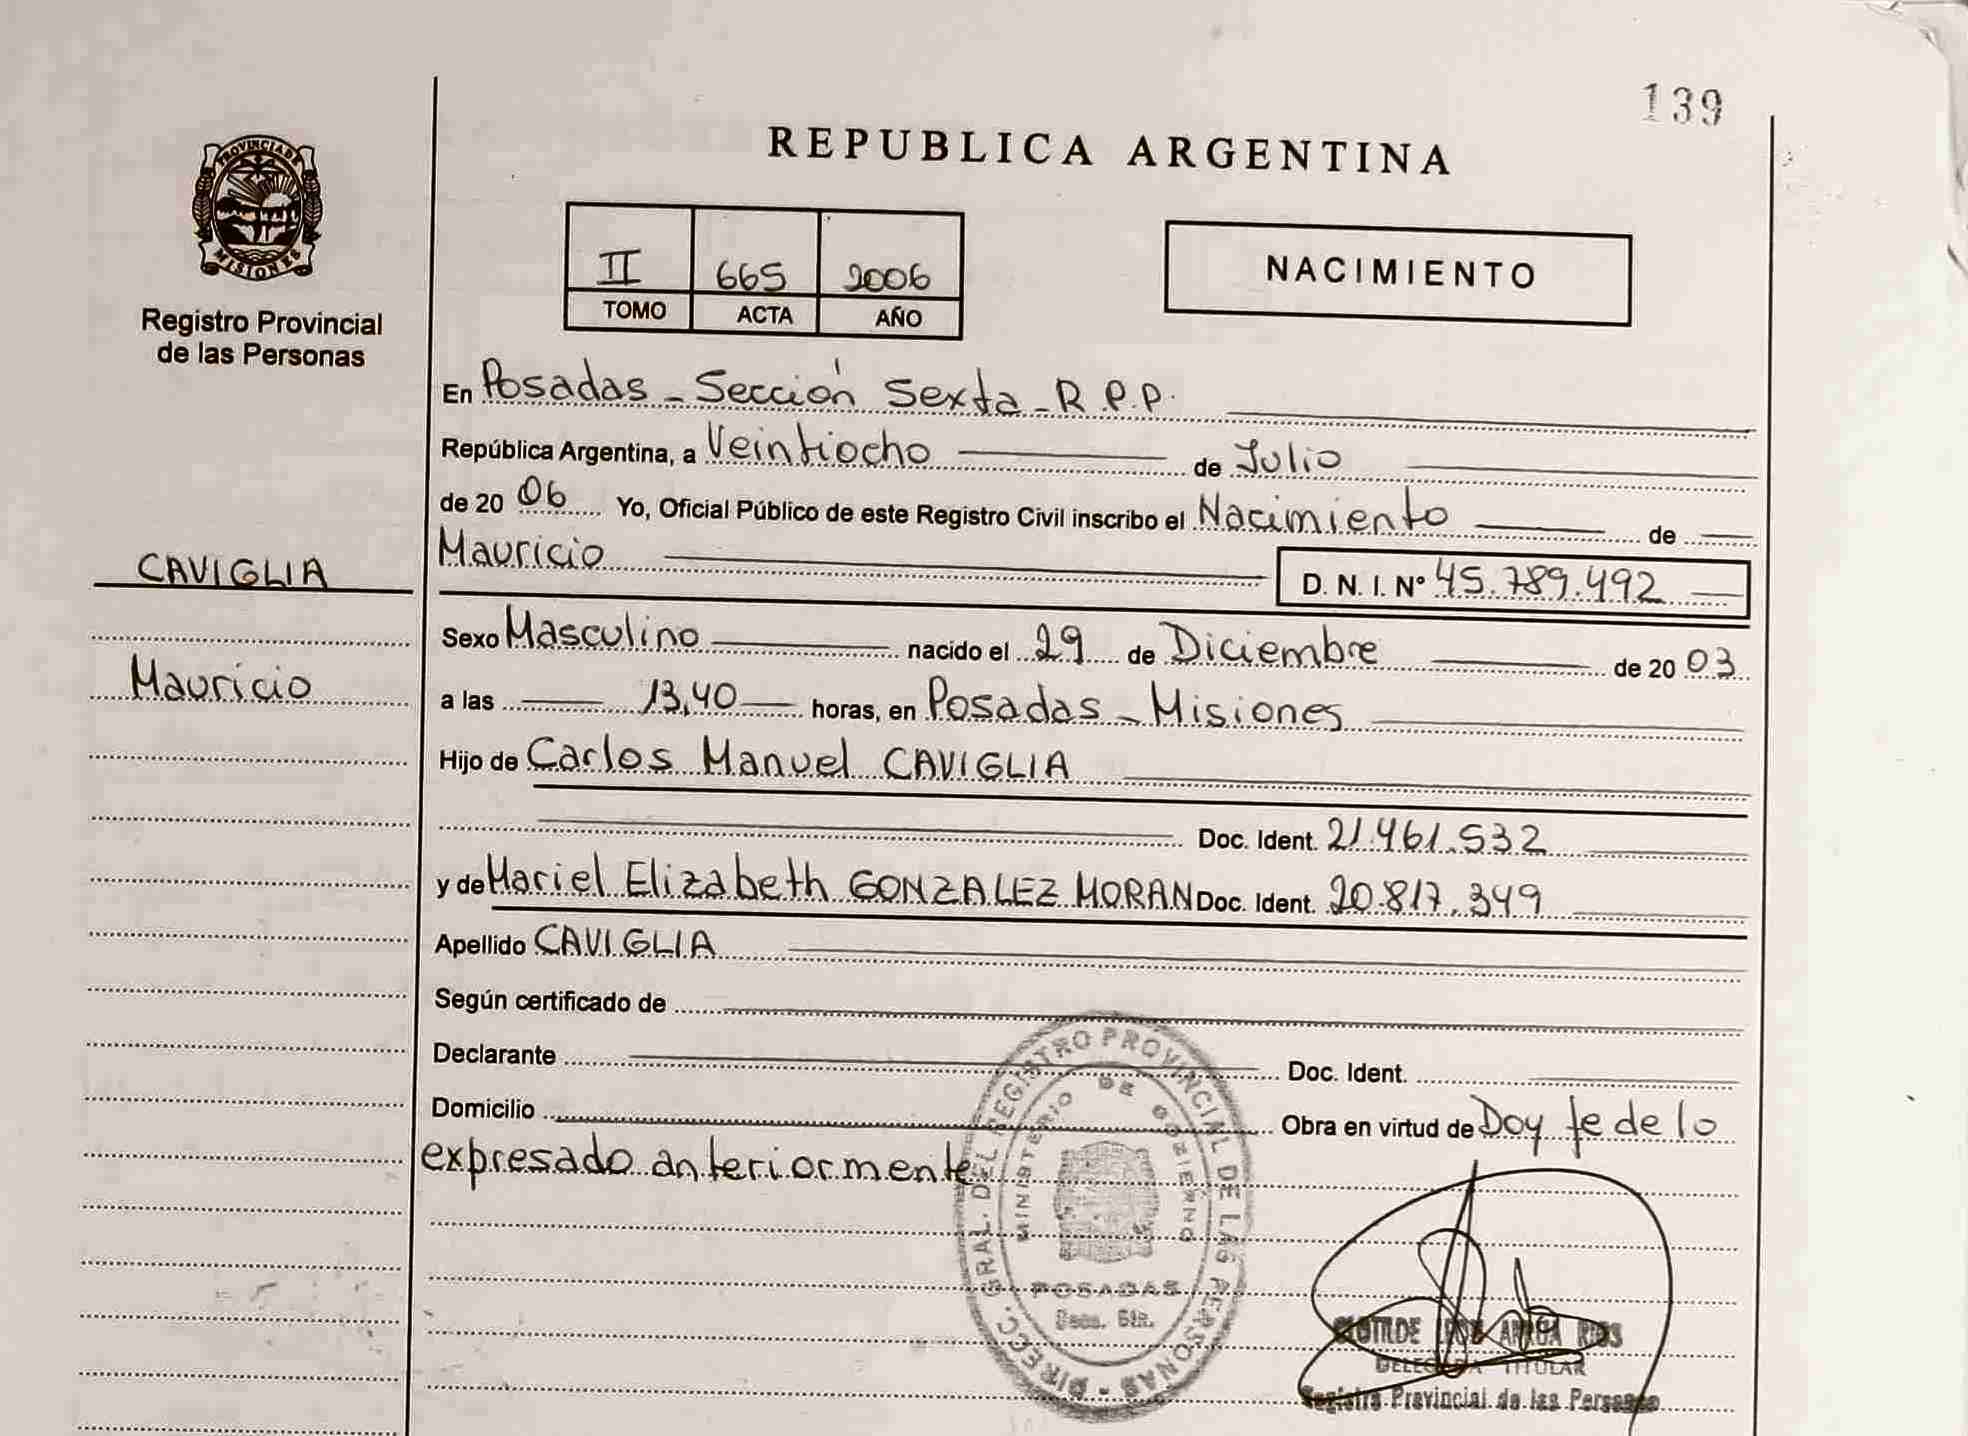 139
REPUBLICA ARGENTINA
PROVINCIA DE
MISIONES
Registro Provincial
de las Personas
II 665 2006
TOMO ACTA AÑO
NACIMIENTO
En Posadas - Sección Sexta - R.P.P.
República Argentina, a Veintiocho de Julio
de 20 06 Yo, Oficial Público de este Registro Civil inscribo el Nacimiento de
CAVIGLIA
Mauricio D. N. I. Nº 45.789.492
Sexo Masculino nacido el 29 de Diciembre de 20 03
Mauricio
a las 13,40 horas, en Posadas - Misiones
Hijo de Carlos Manuel CAVIGLIA
Doc. Ident. 21.461.532
y de Mariel Elizabeth GONZALEZ MORAN Doc. Ident. 20.817.349
Apellido CAVIGLIA
Según certificado de
Declarante Doc. Ident.
Domicilio Obra en virtud de Doy fe de lo
expresado anteriormente
DIRECC. GRAL. DEL REGISTRO PROVINCIAL DE LAS PERSONAS
MINISTERIO DE GOBIERNO
POSADAS
Secc. 6ta.
CLOTILDE RIOS
DELEGADA TITULAR
Registro Provincial de las Personas